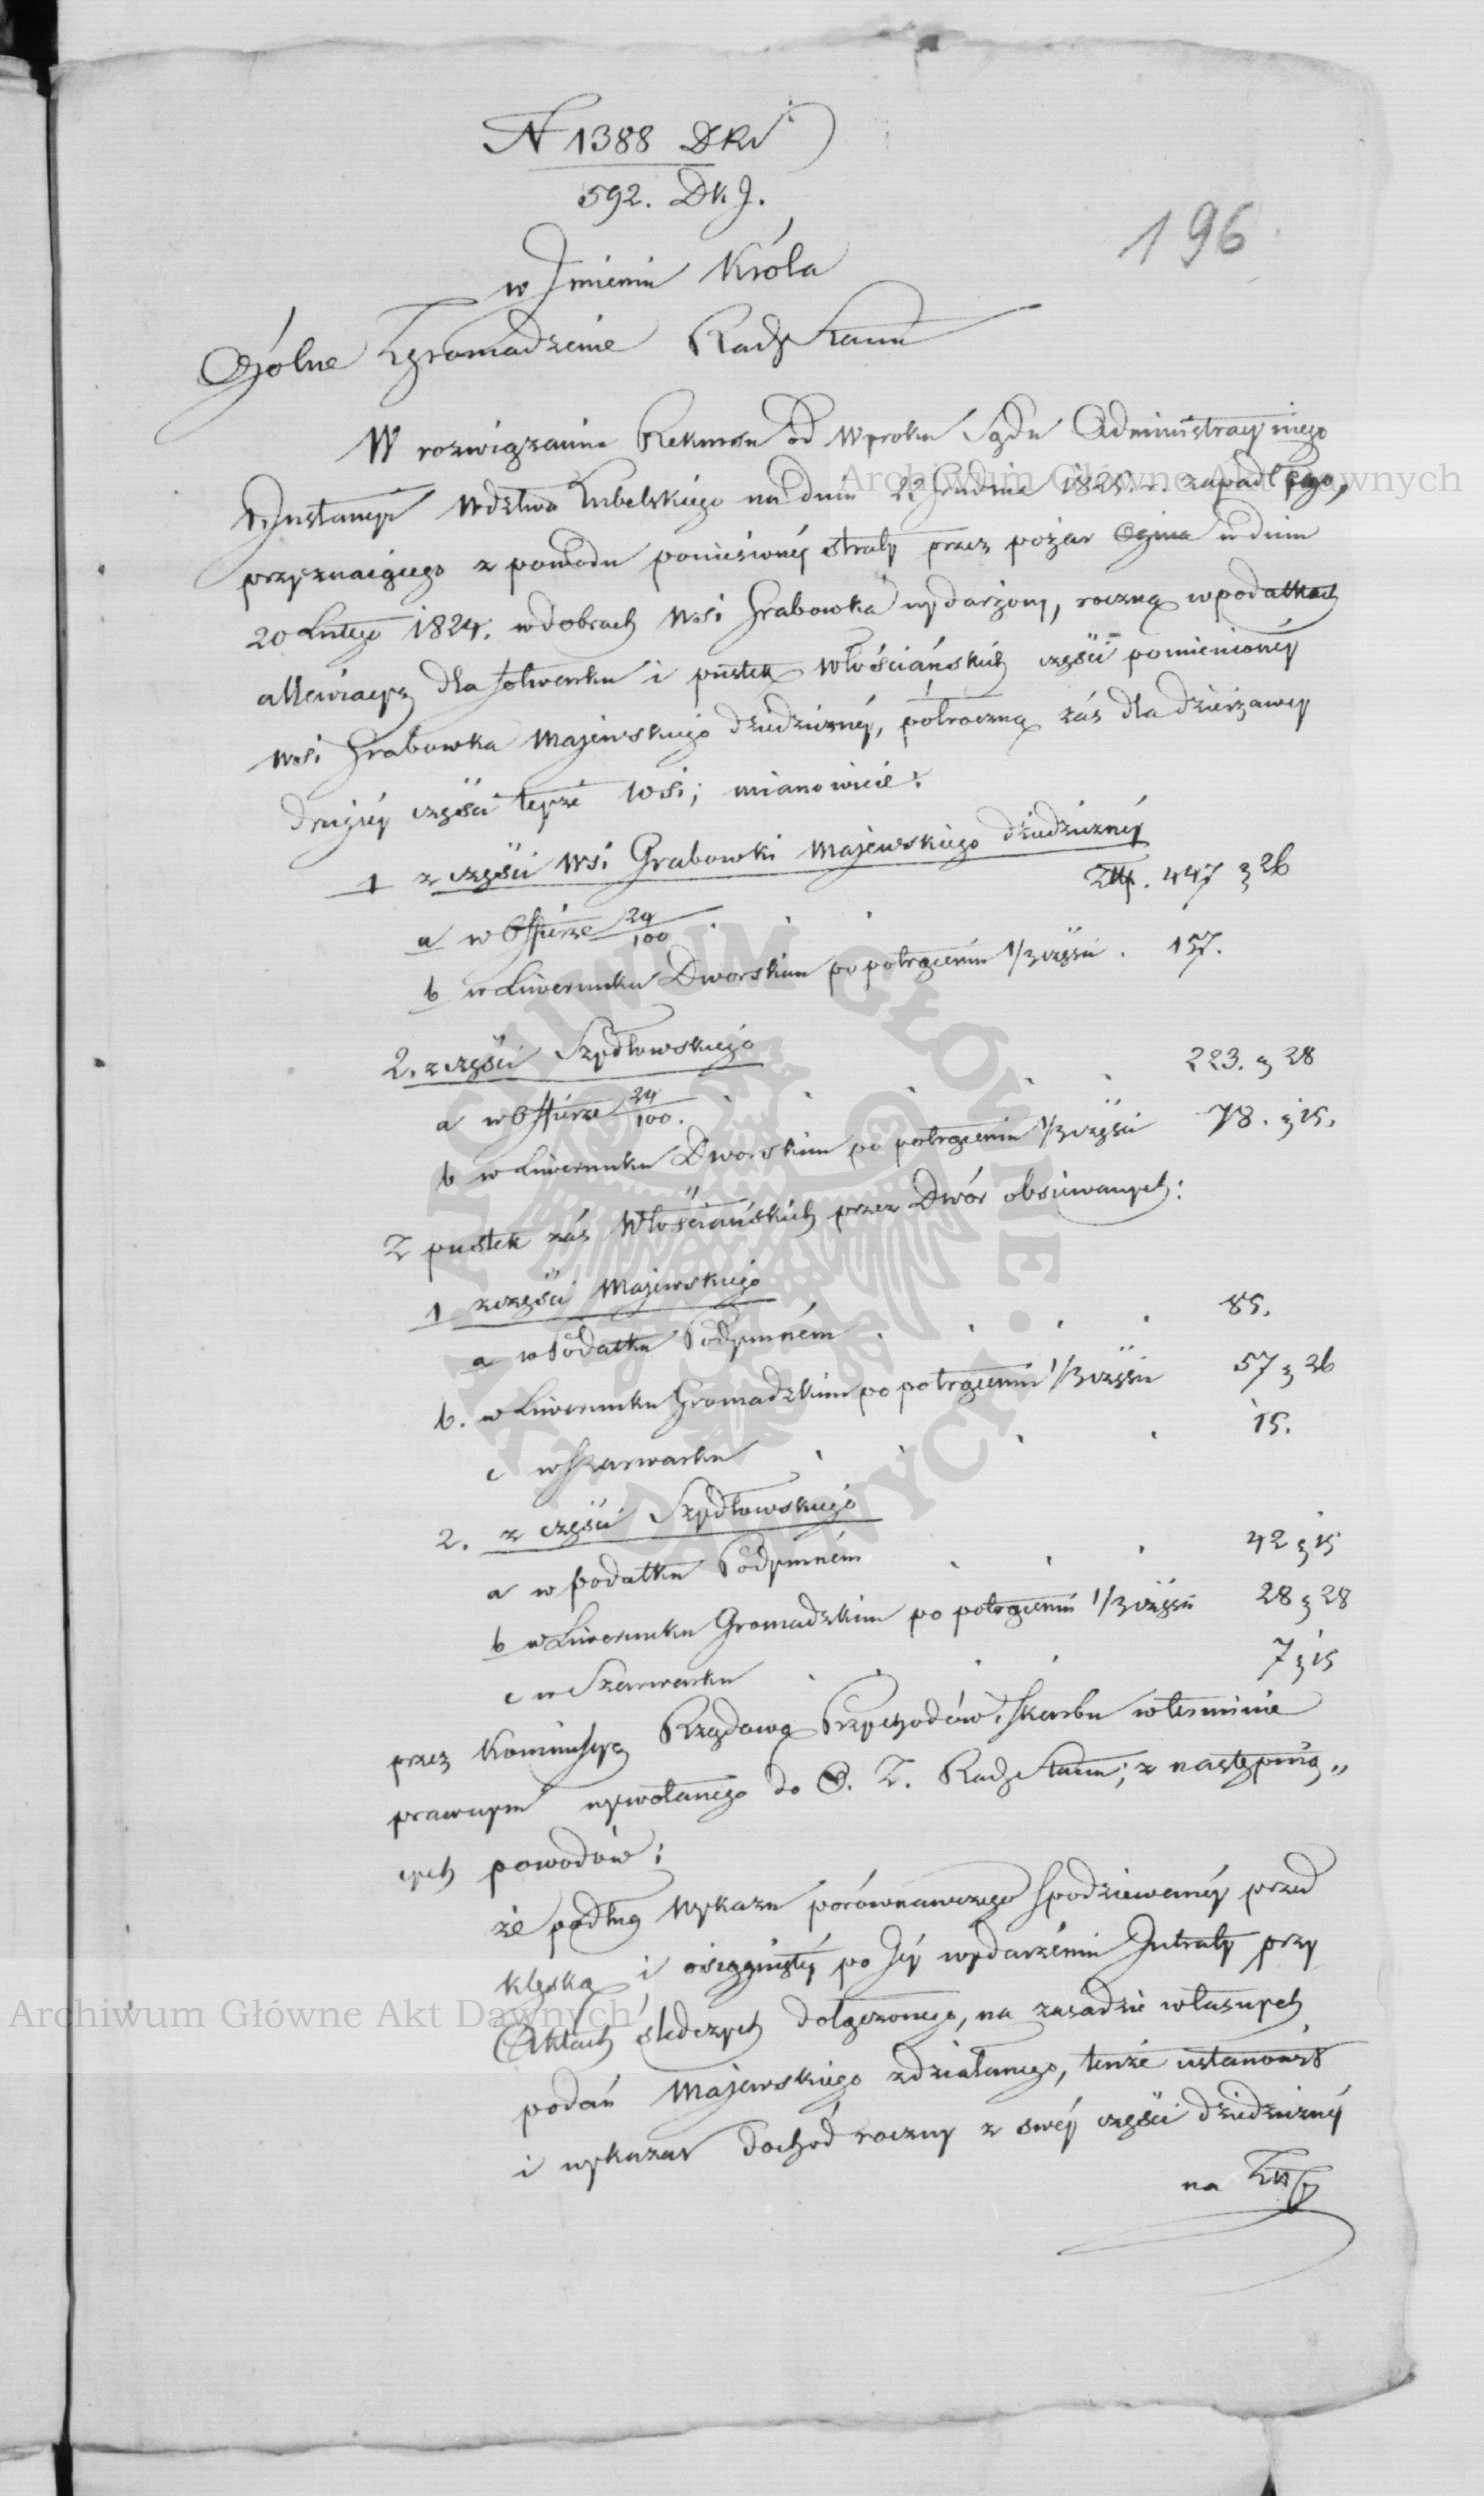 N 1388 DRS
592. Dk. J.
196
w Jmieniu Króla
Ogólne Zgromadzenie Rady Stanu
W rozwiązaniu Rekursu od Wyroku Sądu Administracyinego
I. Instancyi Wdztwa Lubelskiego na dniu 22 Grudnia 1825. r. zapadłego,
przyznaiącego z powodu poniesionéy straty przez pożar Ognia w dniu
20 Lutego 1824. w dobrach Wsi Grabowka wydarzony, roczną w podatkach
allewiacyą dla folwarku i pustek Włościańskich części pomienionéy
Wsi Grabowka Majewskiego dziedzicznéy, półroczną zaś dla dzierżawcy
drugiéy części teyże Wsi; mianowicie:
1 z części Wsi Grabowki Majewskiego dziedzicznéy
a w Offierze 24/100 . . . Złp. 447 g 26
b w Liwerunku Dworskim po potrąceniu 1/3 części . 157.
2. z części Szydłowskiego
a w Offierze 24/100. . . . . . 223. g 28
b w Liwerunku Dworskim po potrąceniu 1/3 części 78. g 15.
Z pustek zaś Włościańskich przez Dwór obsiewanych:
1 z części Majewskiego
a w Podatku Podymném . . . . 85.
b. w Liwerunku Gromadzkim po potrąceniu 1/3 części 57 g 26
c w Szarwarku . . . . 15.
2. z części Szydłowskiego
a w podatku Podymném . . . 42 g 15
b w Liwerunku Gromadzkim po potrąceniu 1/3 części 28 g 28
c w Szarwarku . . . . 7 g 15
przez Kommissyą Rządową Przychodów i Skarbu w terminie
prawnym wywołanego do O. Z. Rady Stanu; z następuią„
cych powodów:
że podług Wykazu porównawczego spodziewanéy przed
klęską i osiągniętéy po Jéy wydarzeniu Intraty przy
Aktach śledczych dołączonego, na zasadzie własnych
podań Majewskiego zdziałanego, tenże ustanowił
i wykazał dochód roczny z swéy części dziedzicznéy
na Złp
Archiwum Główne Akt Dawnych
Archiwum Główne Akt Dawnych
ARCHIWUM GŁÓWNE AKT DAWNYCH